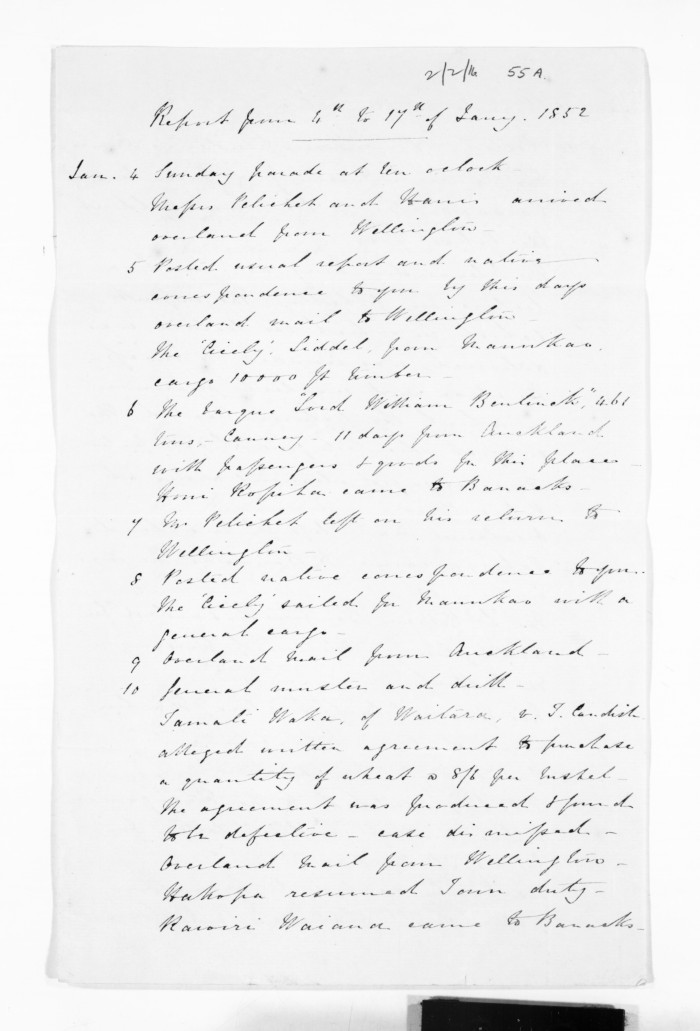 2/2/16 55A
Report from 4th to 17th of Jany. 1852
Jan. 4 Sunday parade at ten o'clock -
Messrs Pelichet and Harris arrived
overland from Wellington -
5 Posted usual report and native
correspondence to you by this days
overland mail to Wellington -
The 'Cicely', Liddel, from Manukao,
cargo 10000 ft timber -
6 The barque "Lord William Bentinck", 461
tons, - Canney - 11 days from Auckland
with passengers & goods for this place -
Honi Ropiha came to Barracks -
7 Mr Pelichet left on his return to
Wellington -
8 Posted native correspondence to you -
The 'Cicely' sailed for Manukao with a
general cargo -
9 Overland Mail from Auckland -
10 General muster and drill -
Tamati Waka, of Waitara, v. T. Candish
alleged written agreement to purchase
a quantity of wheat @ 8/6 per bushel -
The agreement was produced & found
to be defective - case dismissed -
Overland Mail from Wellington -
Hakopa resumed Town duty -
Rawiri Waiaua came to Barracks -